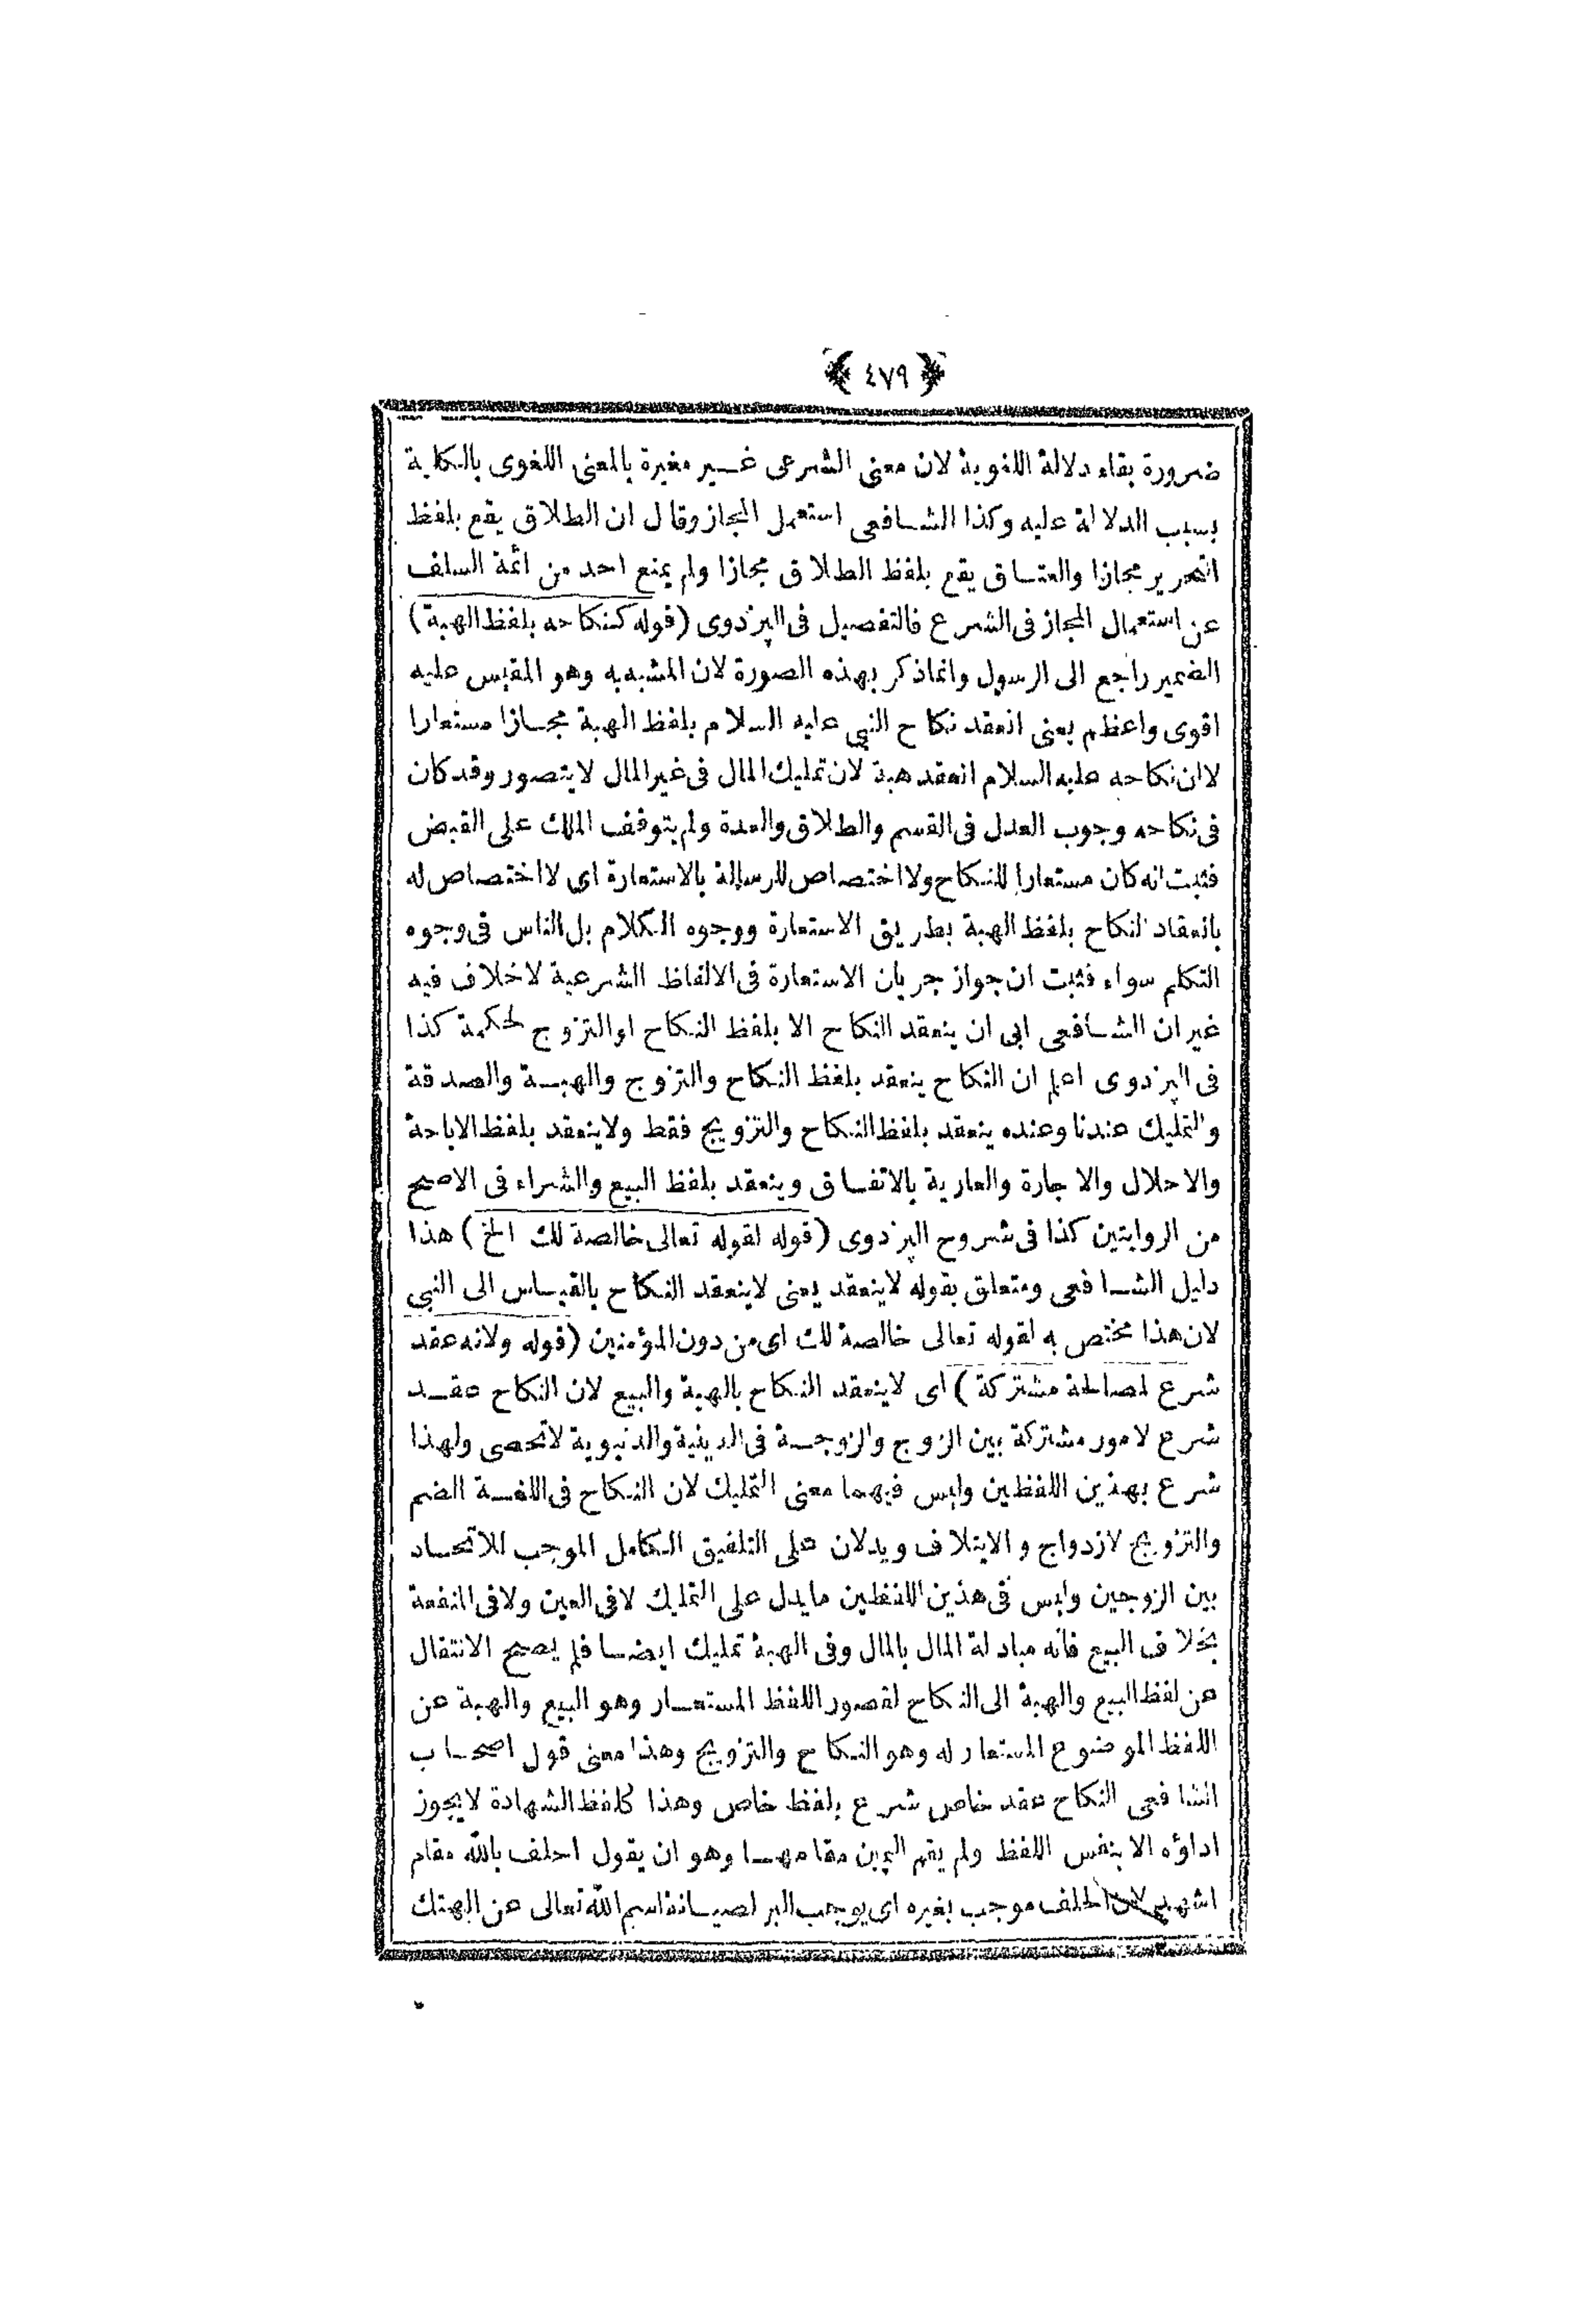 ﴿ ٤٧٩ ﴾
ضرورة بقاء دلالة اللغوية لان معنى الشرعى غير مغيرة بالمعنى اللغوى بالكلية
بسبب الدلالة عليه وكذا الشافعى استعمل المجاز وقال ان الطلاق يقع بلفظ
التحرير مجازا والعتاق يقع بلفظ الطلاق مجازا ولم يمنع احد من ائمة السلف
عن استعمال المجاز فى الشرع فالتفصيل فى البزدوى (قوله كنكاحه بلفظ الهبة)
الضمير راجع الى الرسول وانما ذكر بهذه الصورة لان المشبه به وهو المقيس عليه
اقوى واعظم يعنى انعقد نكاح النبى عليه السلام بلفظ الهبة مجازا مستعارا
لا ان نكاحه عليه السلام انعقد هبة لان تمليك المال فى غير المال لا يتصور وقد كان
فى نكاحه وجوب العدل فى القسم والطلاق والعدة ولم يتوقف الملك على القبض
فثبت انه كان مستعارا للنكاح ولا اختصاص للرسالة بالاستعارة اى لا اختصاص له
بانعقاد النكاح بلفظ الهبة بطريق الاستعارة ووجوه الكلام بل الناس فى وجوه
التكلم سواء فثبت ان جواز جريان الاستعارة فى الالفاظ الشرعية لا خلاف فيه
غير ان الشافعى ابى ان ينعقد النكاح الا بلفظ النكاح او التزوج لحكمة كذا
فى البزدوى اعلم ان النكاح ينعقد بلفظ النكاح والتزوج والهبة والصدقة
والتمليك عندنا وعنده ينعقد بلفظ النكاح والتزويج فقط ولا ينعقد بلفظ الاباحة
والاحلال والاجارة والعارية بالاتفاق وينعقد بلفظ البيع والشراء فى الاصح
من الروايتين كذا فى شروح البزدوى (قوله لقوله تعالى خالصة لك الخ) هذا
دليل الشافعى ومتعلق بقوله لا ينعقد يعنى لا ينعقد النكاح بالقياس الى النبى
لان هذا مختص به لقوله تعالى خالصة لك اى من دون المؤمنين (قوله ولانه عقد
شرع لمصالحة مشتركة) اى لا ينعقد النكاح بالهبة والبيع لان النكاح عقد
شرع لامور مشتركة بين الزوج والزوجة فى الدينية والدنيوية لا تحصى ولهذا
شرع بهذين اللفظين وليس فيهما معنى التمليك لان النكاح فى اللغة الضم
والتزويج لازدواج و الايتلاف ويدلان على التلفيق الكامل الموجب للاتحاد
بين الزوجين وليس فى هذين اللفظين ما يدل على التمليك لا فى العين ولا فى المنفعة
بخلاف البيع فانه مبادلة المال بالمال وفى الهبة تمليك ايضا فلم يصح الانتقال
عن لفظ البيع والهبة الى النكاح لقصور اللفظ المستعار وهو البيع والهبة عن
اللفظ الموضوع المستعار له وهو النكاح والتزويج وهذا معنى قول اصحاب
الشافعى النكاح عقد خاص شرع بلفظ خاص وهذا كلفظ الشهادة لا يجوز
اداؤه الا بنفس اللفظ ولم يقم اليمين مقامهما وهو ان يقول احلف بالله مقام
اشهد لان الحلف موجب بغيره اى يوجب البر لصيانة اسم الله تعالى عن الهتك